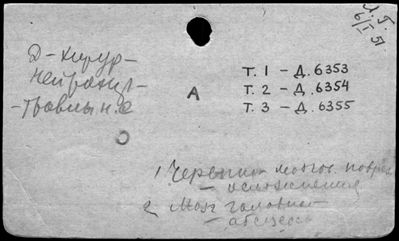 Л. Г.
6/I 51
Д-хирур-
нейрохир-
-травмы н.с
А
Т. 1 – Д. 6353
Т. 2 – Д. 6354
Т. 3 – Д. 6355
О
1 Черепно-мозгов. поврежд
осложнения
2 Мозг головной -
абсцесс